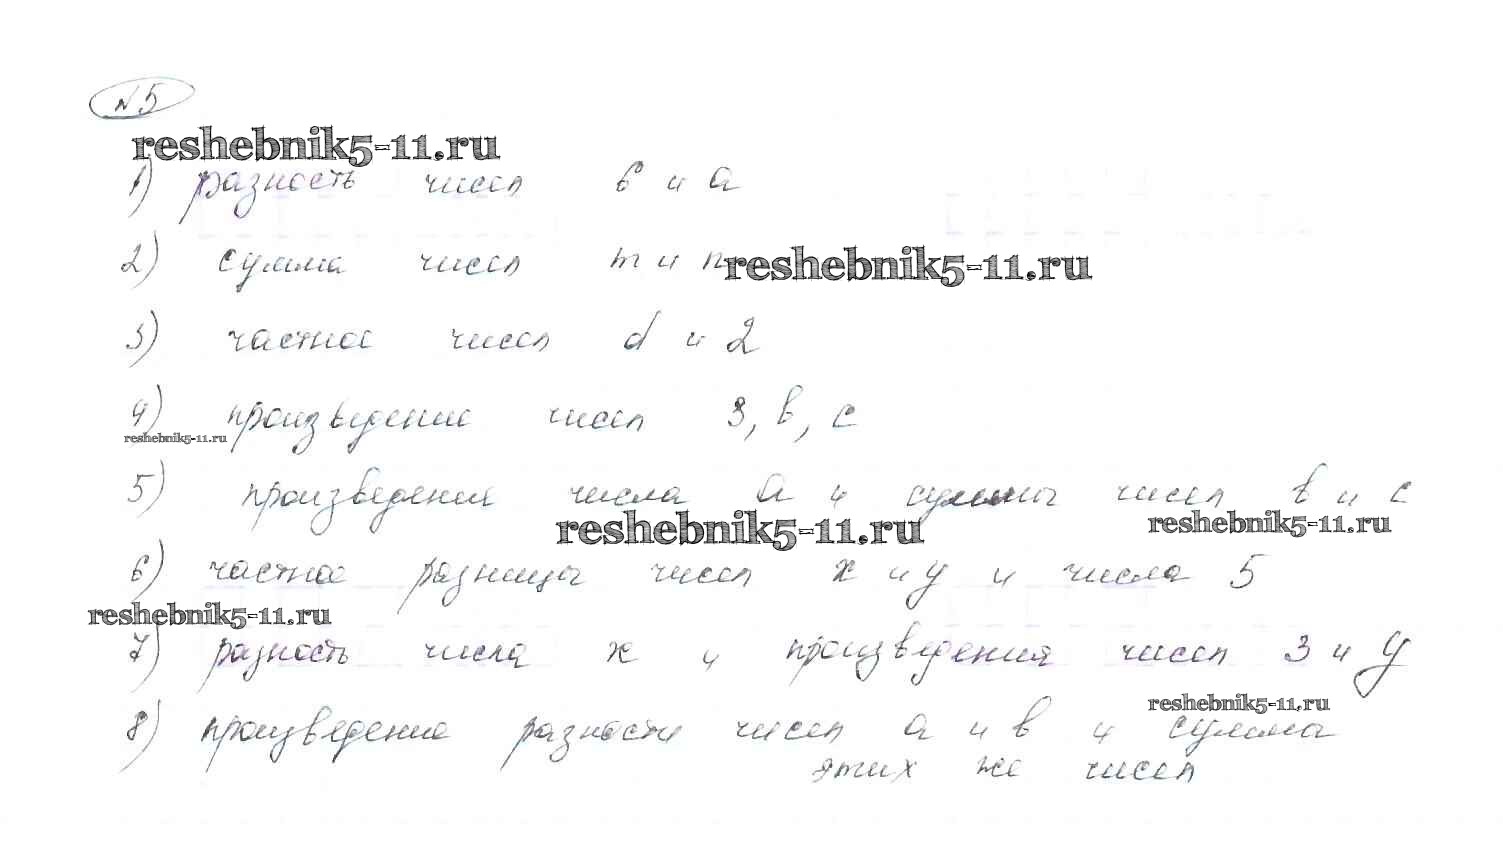 №5
reshebnik5-11.ru
1) разность чисел 6 и a
2) сумма чисел m и n
reshebnik5-11.ru
3) частное чисел d и 2
4) произведение чисел 3, b, c
reshebnik5-11.ru
5) произведения числа a и суммы чисел b и c
reshebnik5-11.ru
reshebnik5-11.ru
6) частное разницы чисел x и y и числа 5
reshebnik5-11.ru
7) разность числа x и произведения чисел 3 и y
reshebnik5-11.ru
8) произведение разности чисел a и b и сумма
этих же чисел